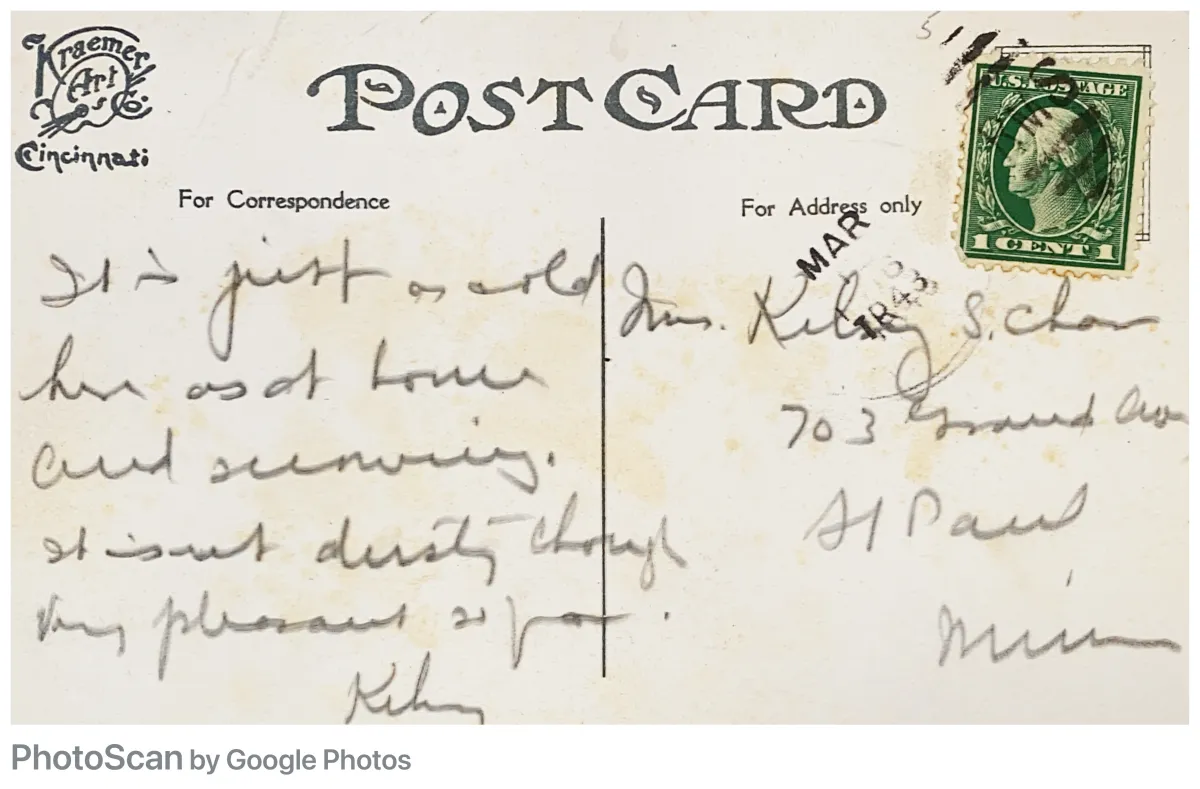 Kraemer
Art
Co.
Cincinnati
POST CARD
U.S. POSTAGE
1 CENT 1
For Correspondence
For Address only
MAR
It is just as cold
here as at home
and snowing.
It isnt dusty though
Very pleasant so far.
Kelsey
Mrs. Kelsey S. Chase
703 Grand Ave
St Paul
Minn
PhotoScan by Google Photos